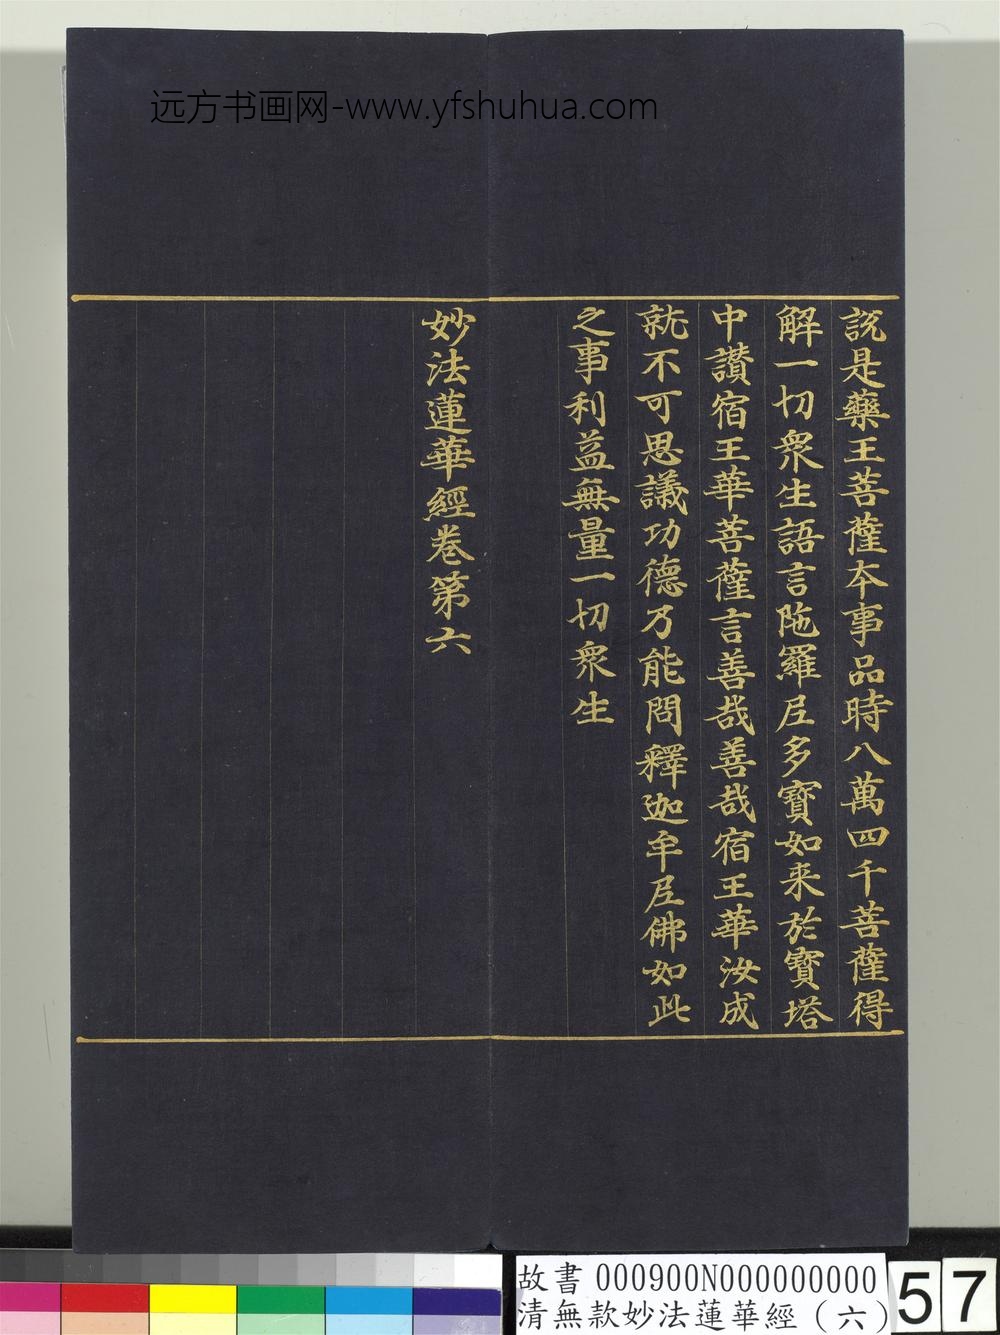 远方书画网-www.yfshuhua.com
說是藥王菩薩本事品時八萬四千菩薩得
解一切衆生語言陁羅尼多寶如來於寶塔
中讃宿王華菩薩言善哉善哉宿王華汝成
就不可思議功德乃能問釋迦牟尼佛如此
之事利益無量一切衆生
妙法蓮華經卷第六
故書 000900N000000000
清無款妙法蓮華經（六）
57